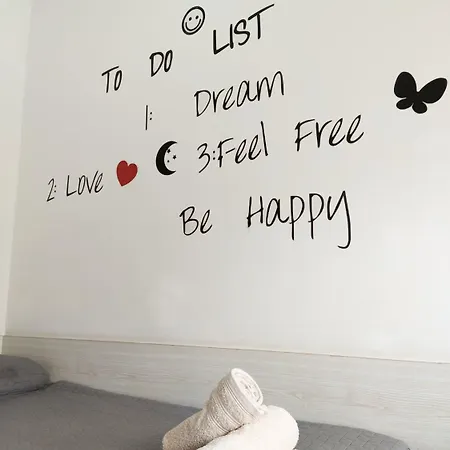 TO DO LIST
1: Dream
2: Love
3:Feel Free
Be Happy